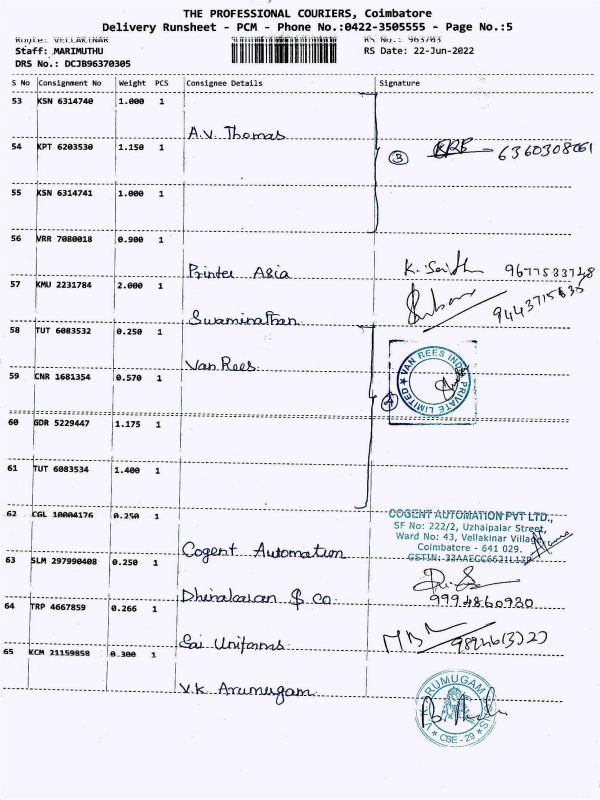 THE PROFESSIONAL COURIERS, Coimbatore
Delivery Runsheet - PCM - Phone No.:0422-3505555 - Page No.:5
Route: VELLAKINAR RS No.: 963703
Staff: MARIMUTHU RS Date: 22-Jun-2022
DRS No.: DCJB96370305
S No Consignment No Weight PCS Consignee Details Signature
53 KSN 6314740 1.000 1
A.V. Thomas
54 KPT 6203530 1.150 1
3 6360308261
55 KSN 6314741 1.000 1
56 VRR 7080018 0.900 1
Printer Asia 9677583748
57 KMU 2231784 2.000 1
Swaminathan 9443715635
58 TUT 6083532 0.250 1
Van Rees
VAN REES INDIA PRIVATE LIMITED
59 CNR 1681354 0.570 1
60 GDR 5229447 1.175 1
61 TUT 6083534 1.400 1
62 CGL 10004176 0.250 1
COGENT AUTOMATION PVT LTD.,
SF No: 222/2, Uzhaipalar Street,
Ward No: 43, Vellakinar Village
Coimbatore - 641 029.
Cogent Automation
63 SLM 297990408 0.250 1
Dhinakaran & Co.
9994860930
64 TRP 4667859 0.266 1
Sai Uniforms
65 KCM 21159858 0.300 1
V.K Arumugam
V.K. ARUMUGAM
CBE - 29